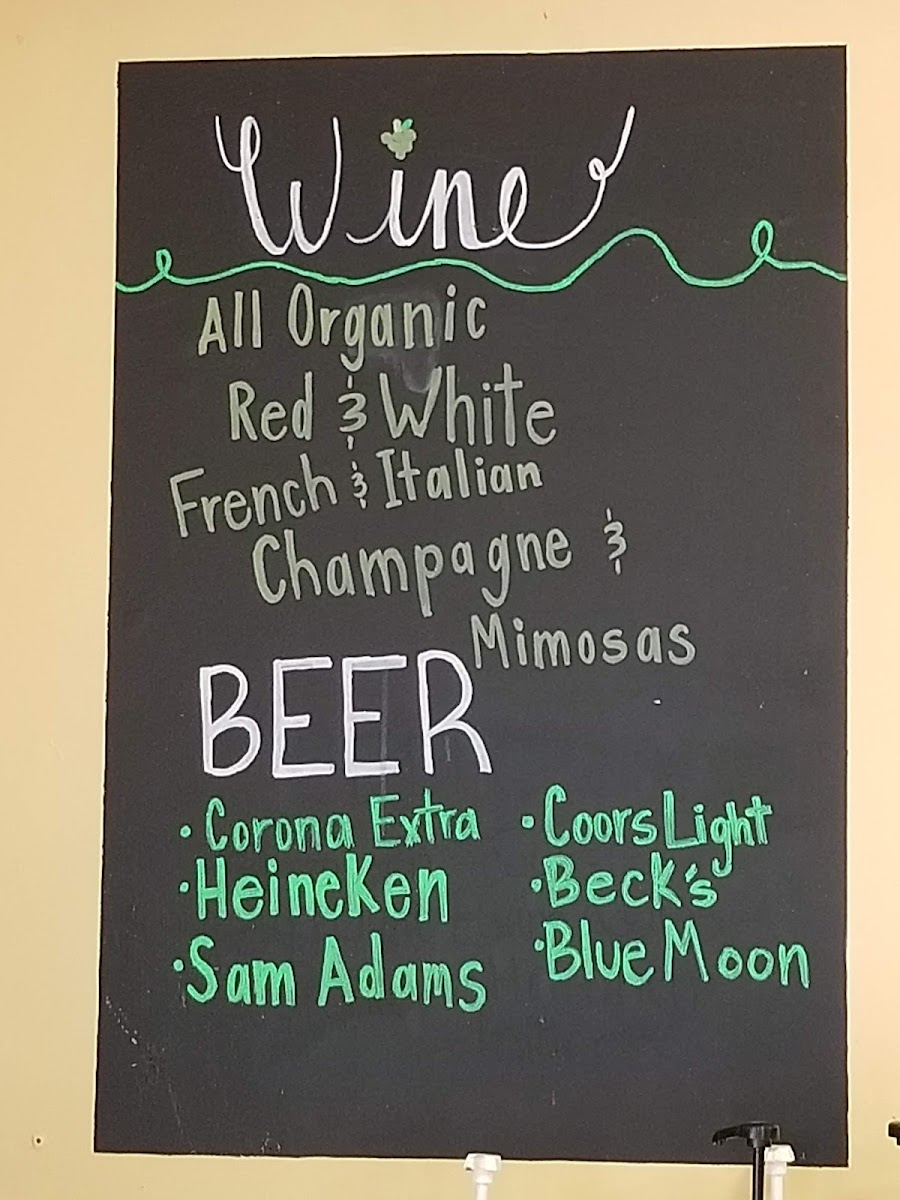 Wine
All Organic
Red & White
French & Italian
Champagne &
Mimosas
BEER
• Corona Extra
• Heineken
• Sam Adams
• Coors Light
• Beck's
• Blue Moon